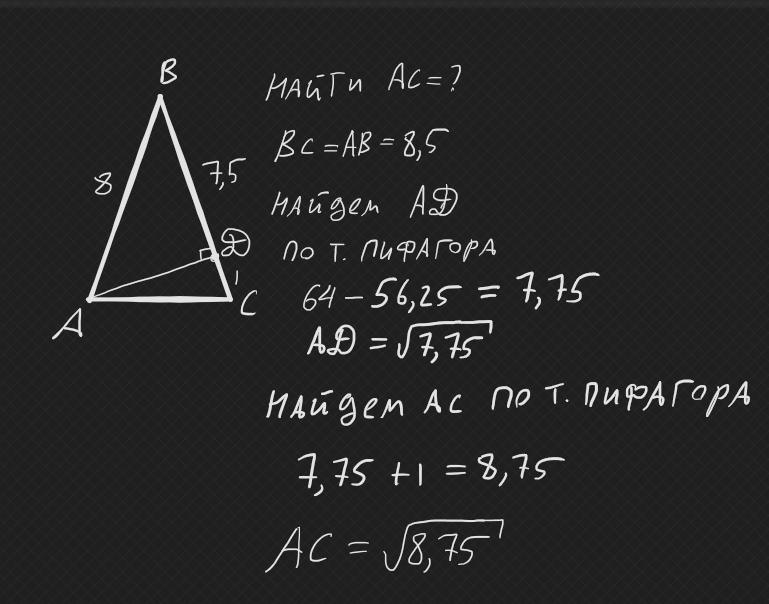 B
НАЙТИ AC=?
BC=AB=8,5
8
7,5
НАЙДЕМ AD
D
ПО Т. ПИФАГОРА
1
C
64-56,25=7,75
A
AD=√7,75
НАЙДЕМ AC ПО Т. ПИФАГОРА
7,75+1=8,75
AC=√8,75